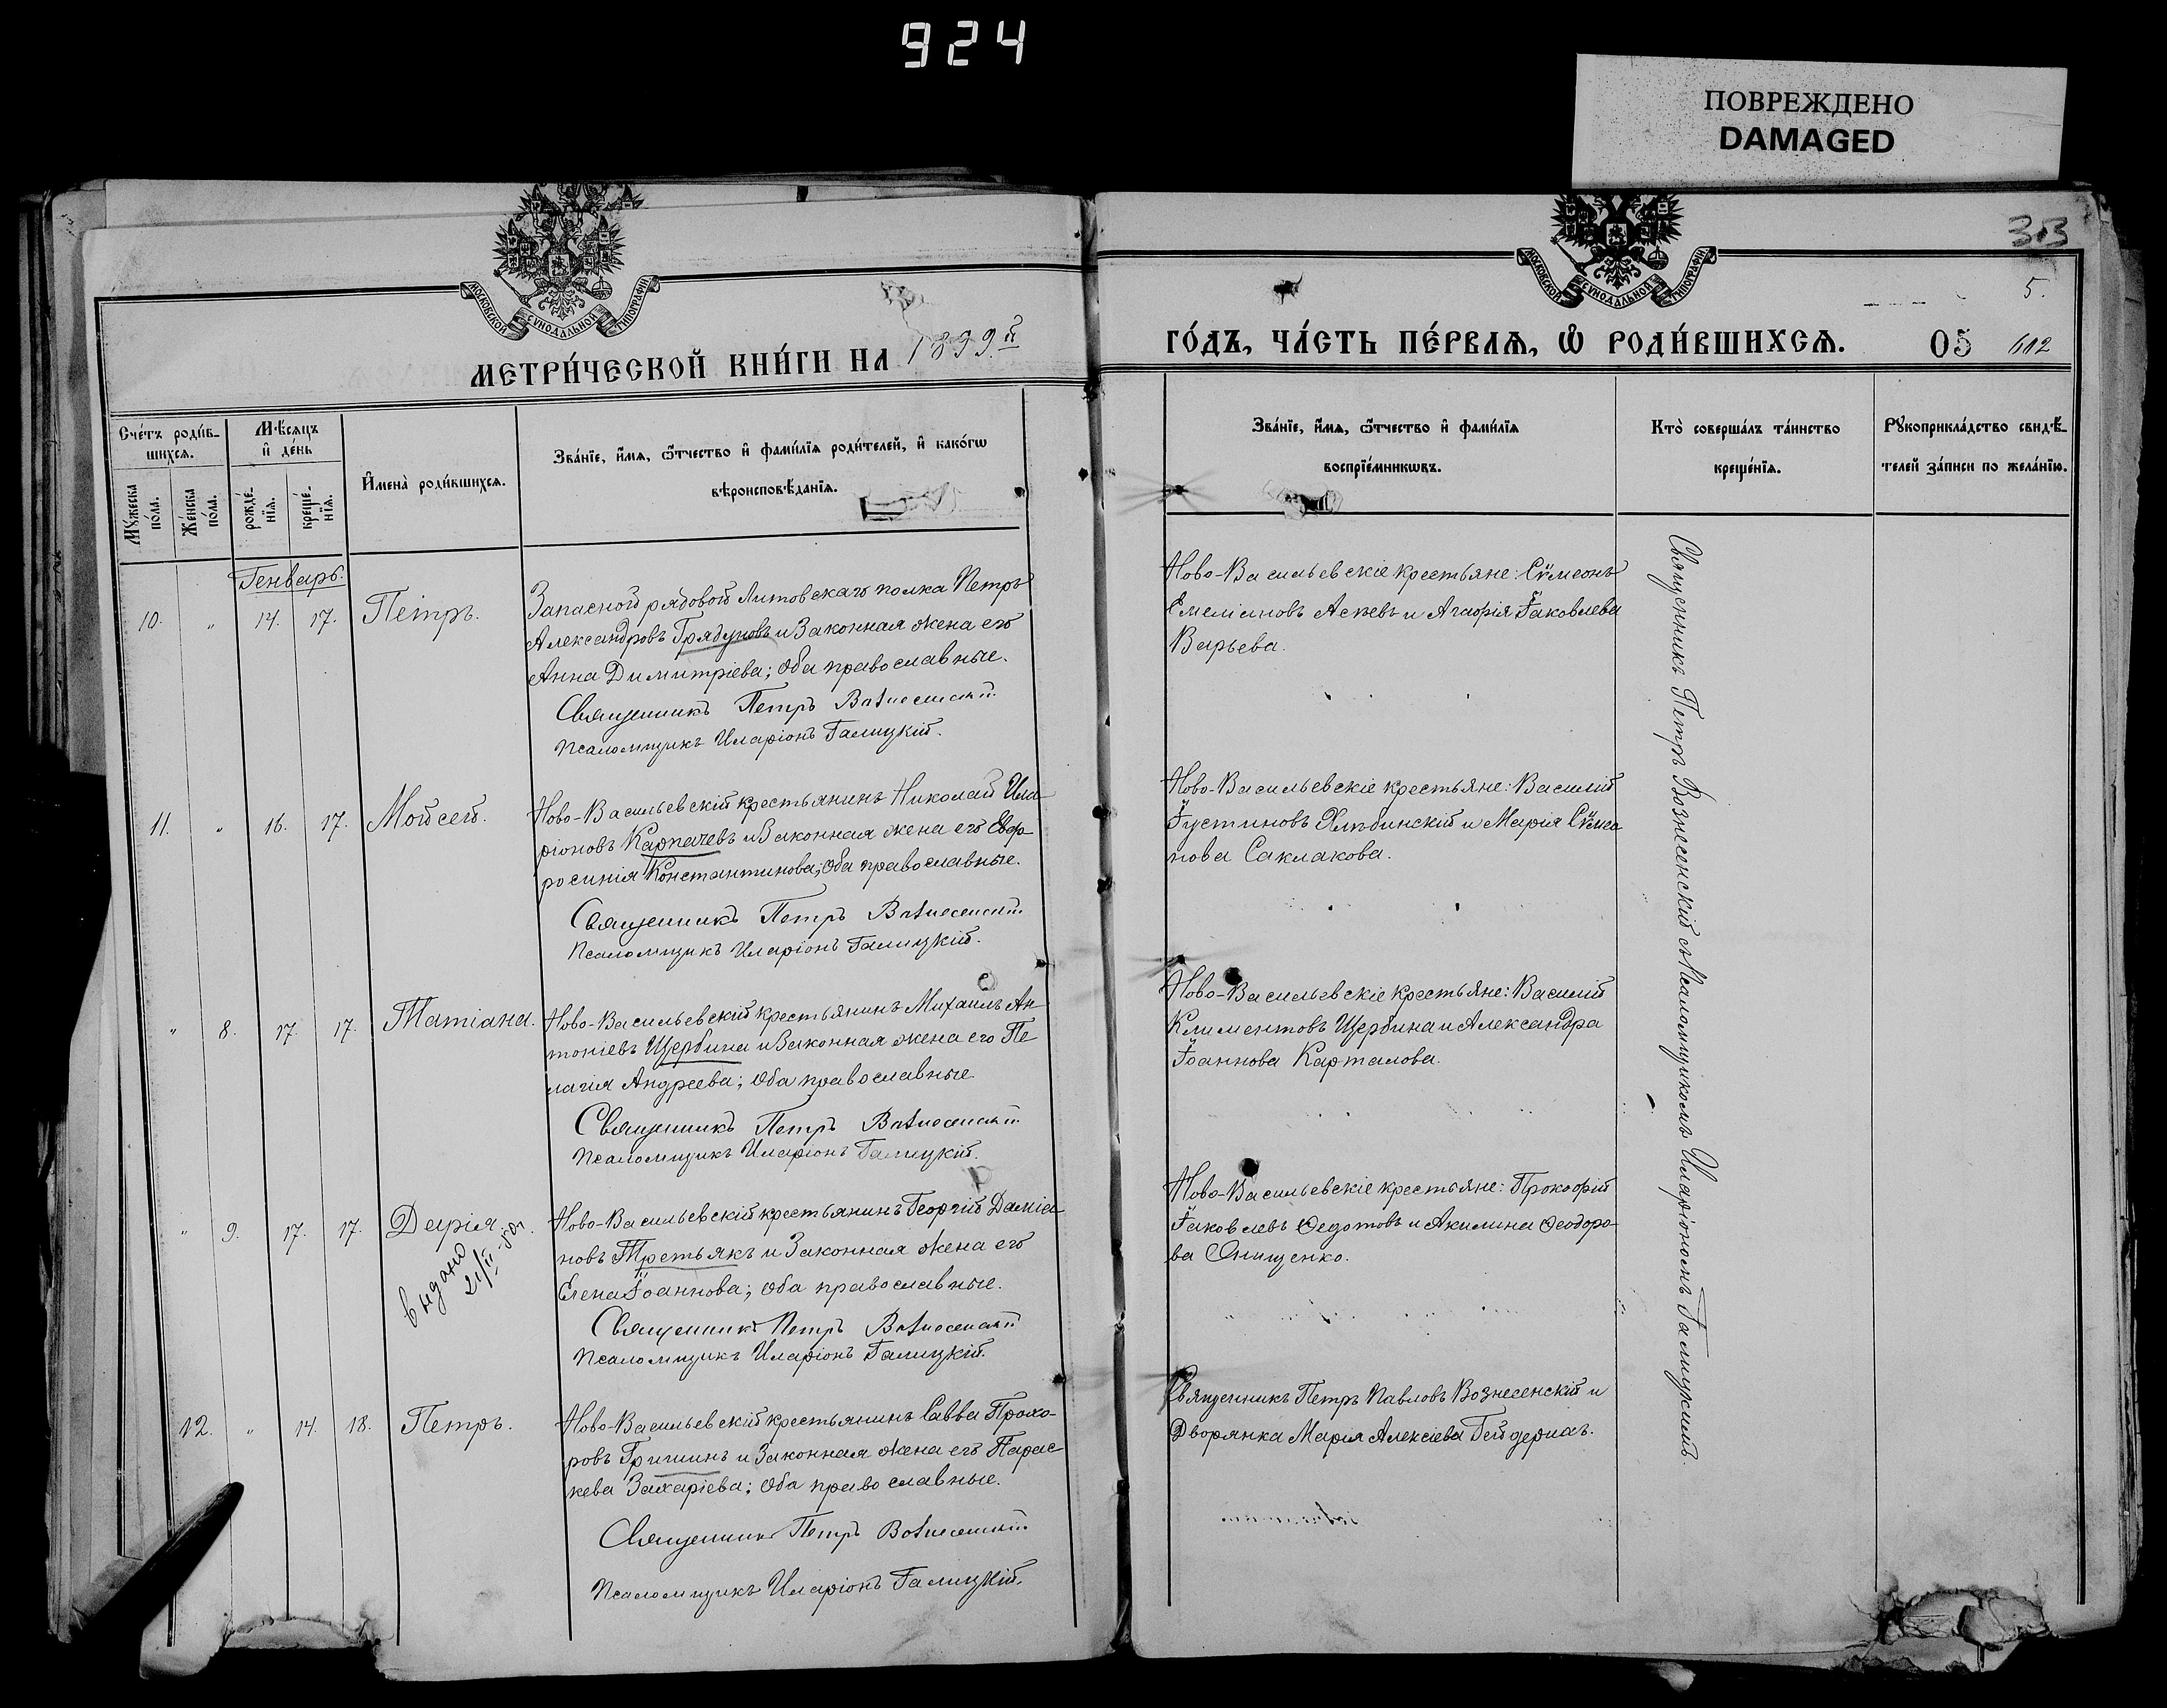 924
ПОВРЕЖДЕНО
DAMAGED
33
5.
МОСКОВСКОЙ СѴНОДАЛЬНОЙ ТИПОГРАФІИ
МОСКОВСКОЙ СѴНОДАЛЬНОЙ ТИПОГРАФІИ
МЕТРИ́ЧЕСКОЙ КНИ́ГИ НА 1899й
ГО́ДЪ, ЧА́СТЬ ПЕ́РВАЯ, Ѡ РОДИ́ВШИХСЯ. 05 602
Сче́тъ роди́в-
шихся.
Му́жеска по́ла.
Же́нска по́ла.
Мѣ́сяцъ и де́нь
рожде́-нїя.
креще́-нїя.
Имена̀ роди́вшихся.
Зва́нїе, и́мя, ѻ́тчество и фами́лїя роди́телей, и како́гѡ
вѣроисповѣ́данїя.
Зва́нїе, и́мя, ѻ́тчество и фами́лїя
воспрїе́мникѡвъ.
Кто̀ соверша́лъ та́инство
креще́нїя.
Рꙋкоприкла́дство свидѣ́-
телей за́писи по жела́нїю.
Генварь.
10. " 14. 17. Петръ.
Запасной рядовой Литовскаго полка Петръ
Александровъ Грядуновъ и законная жена его
Анна Димитріева; оба православные.
Священникъ Петръ Вознесенскій
Псаломщикъ Иларіонъ Галицкій.
Ново-Васильевскіе крестьяне: Сѵмеонъ
Емеліановъ и Агафія Іаковлева
Варьева.
11. " 16. 17. Мойсей.
Ново-Васильевскій крестьянинъ Николай Ила-
ріоновъ Карпачевъ и законная жена его Евф-
росинія Константинова; оба православные.
Священникъ Петръ Вознесенскій
Псаломщикъ Иларіонъ Галицкій.
Ново-Васильевскіе крестьяне: Василій
Іустиновъ Ялпбинскій и Марія Сѵмео
нова Саклакова.
" 8. 17. 17. Татіана.
Ново-Васильевскій крестьянинъ Михаилъ Ан
тоніевъ Щербина и законная жена его Пе
лагія Андреева; оба православные.
Священникъ Петръ Вознесенскій
Псаломщикъ Иларіонъ Галицкій.
Ново-Васильевскіе крестьяне: Василій
Климентовъ Щербина и Александра
Іоаннова Карталова.
" 9. 17. 17. Дарія.
выдано
21/II-50г.
Ново-Васильевскій крестьянинъ Георгій Даміа-
новъ Третьякъ и законная жена его
Елена Іоаннова; оба православные.
Священникъ Петръ Вознесенскій
Псаломщикъ Иларіонъ Галицкій.
Ново-Васильевскіе крестьяне: Прокофій
Іаковлевъ Ѳедотовъ и Акилина Ѳеодоро-
ва Онищенко.
12. " 14. 18. Петръ.
Ново-Васильевскій крестьянинъ Савва Прохо-
ровъ Гришинъ и законная жена его Парас-
кева Захаріева; оба православные.
Священникъ Петръ Вознесенскій
Псаломщикъ Иларіонъ Галицкій.
Священникъ Петръ Павловъ Вознесенскій и
Дворянка Марія Алексіева Гейдерихъ.
Священникъ Петръ Вознесенскій съ Псаломщикомъ Иларіономъ Галицкимъ.